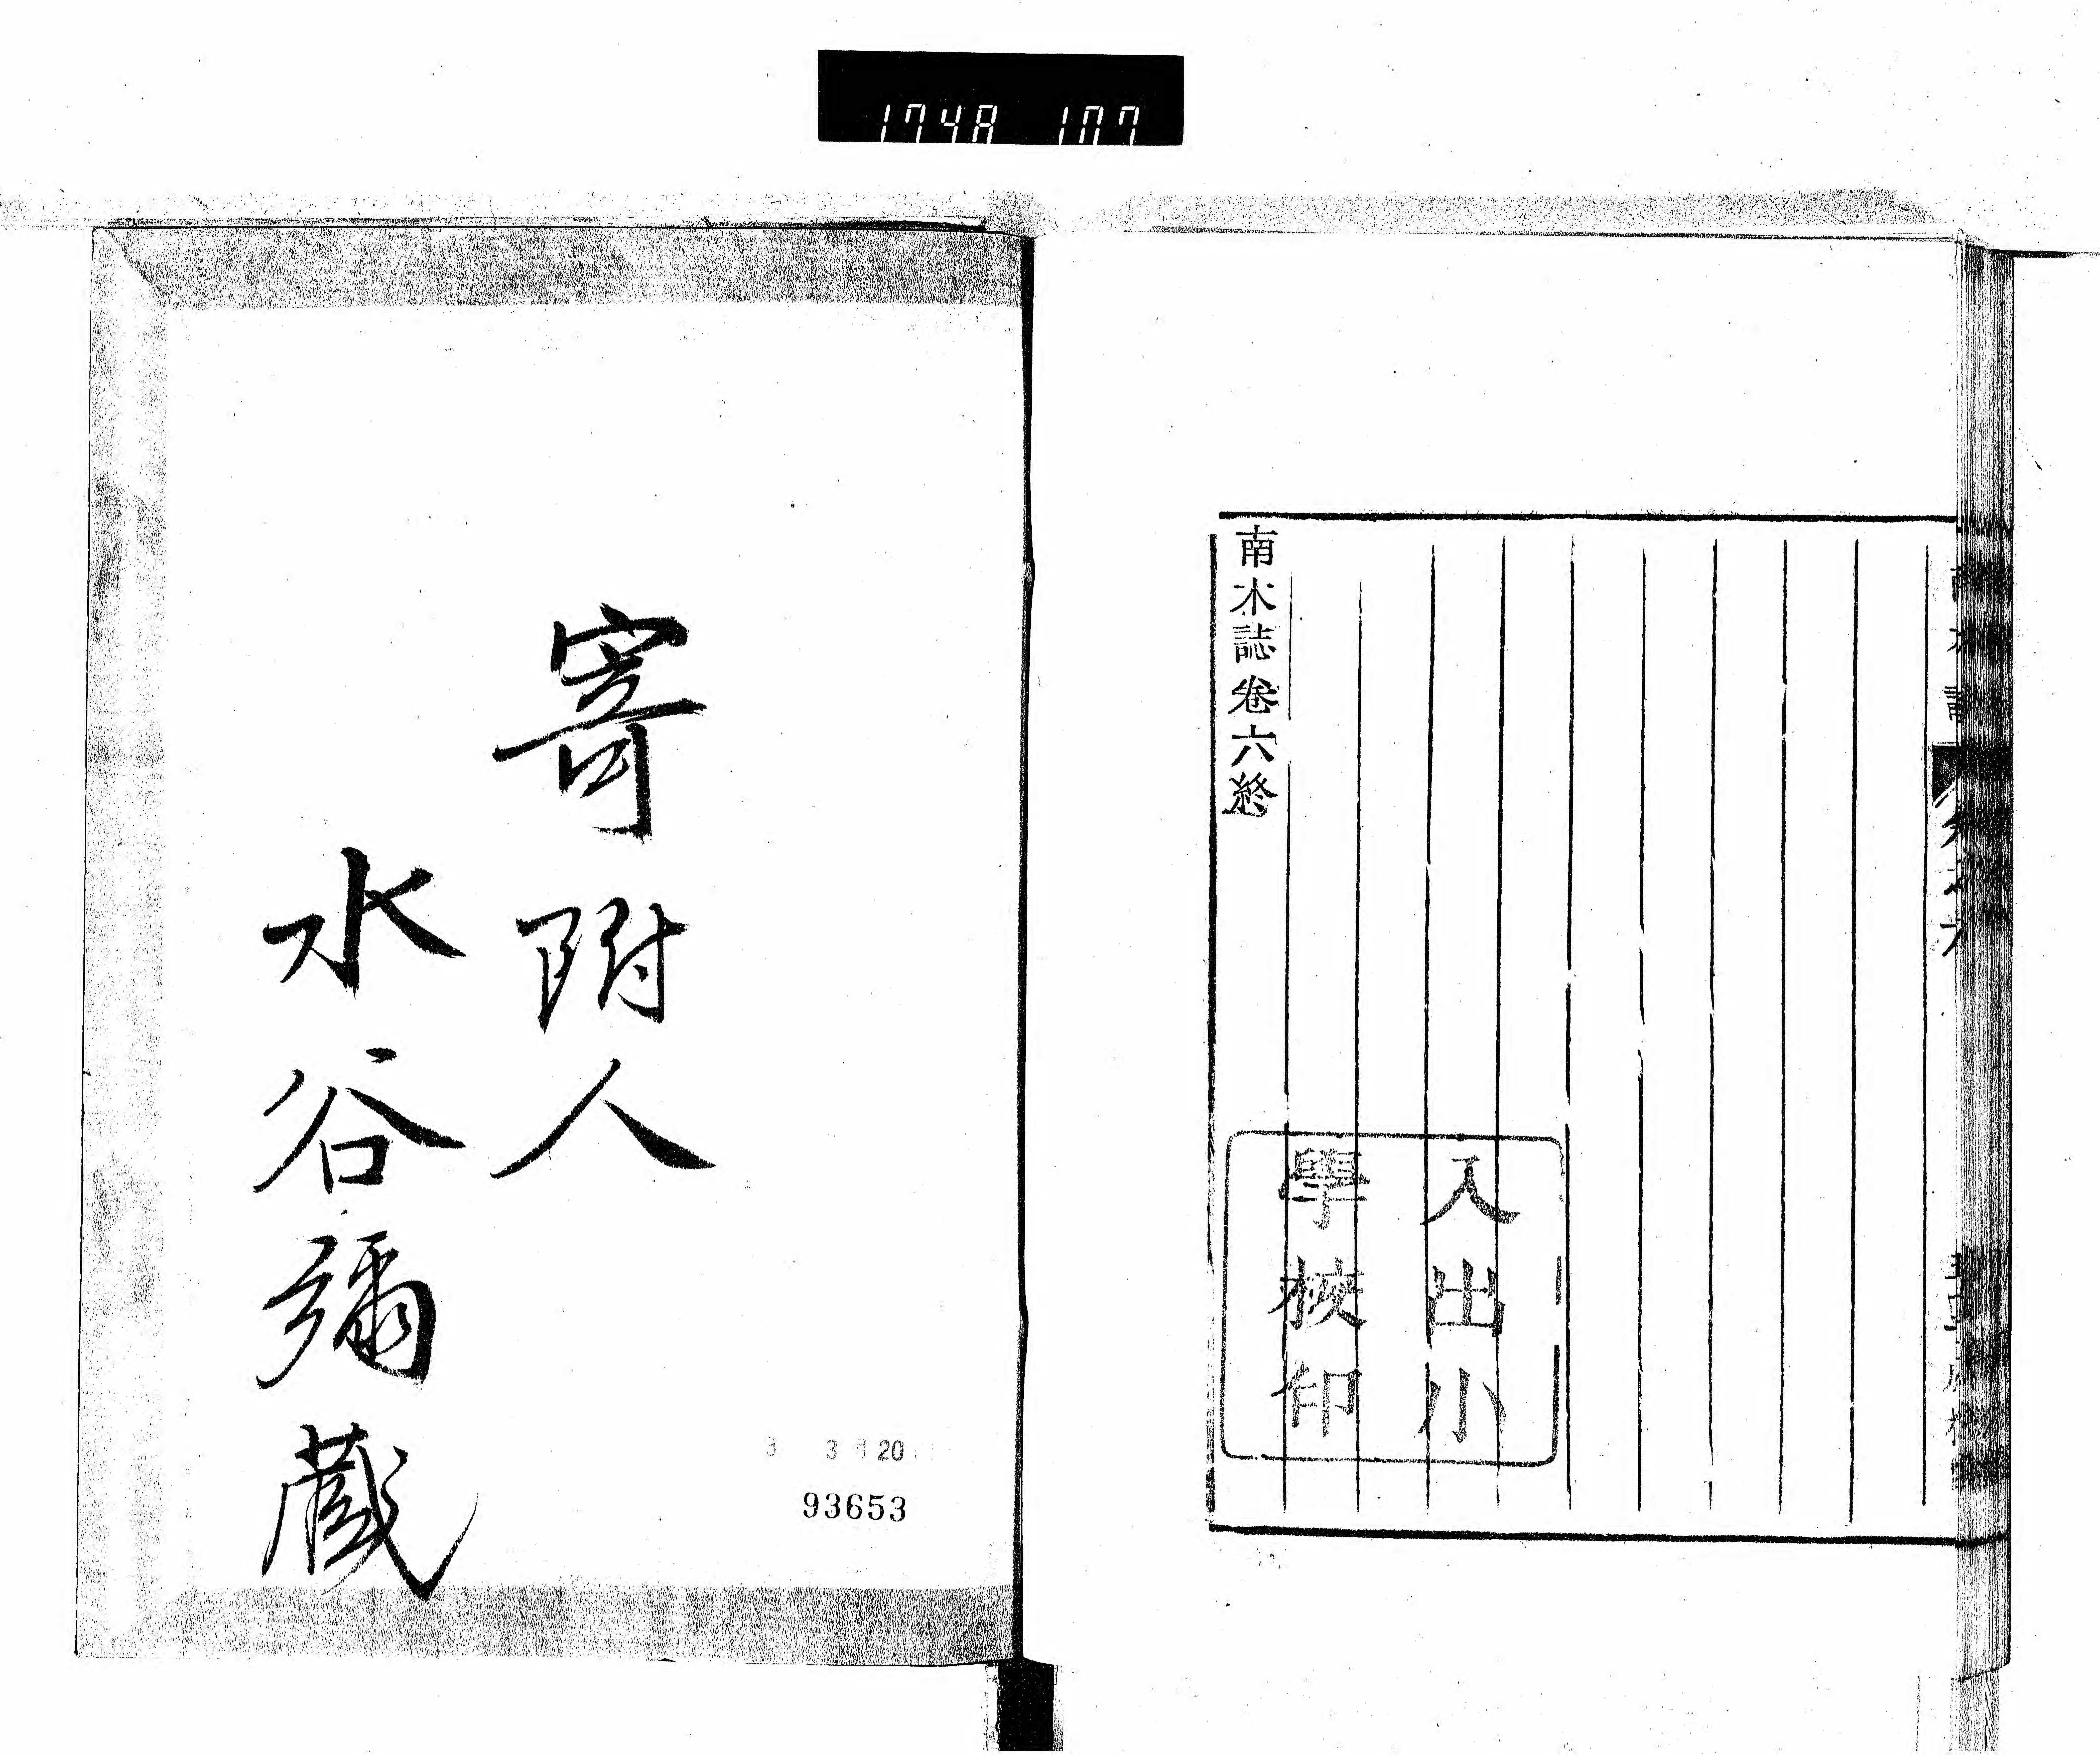 1748 107
南木誌卷六終
入出小
學校印
寄附人
水谷彌藏
3 20
93653